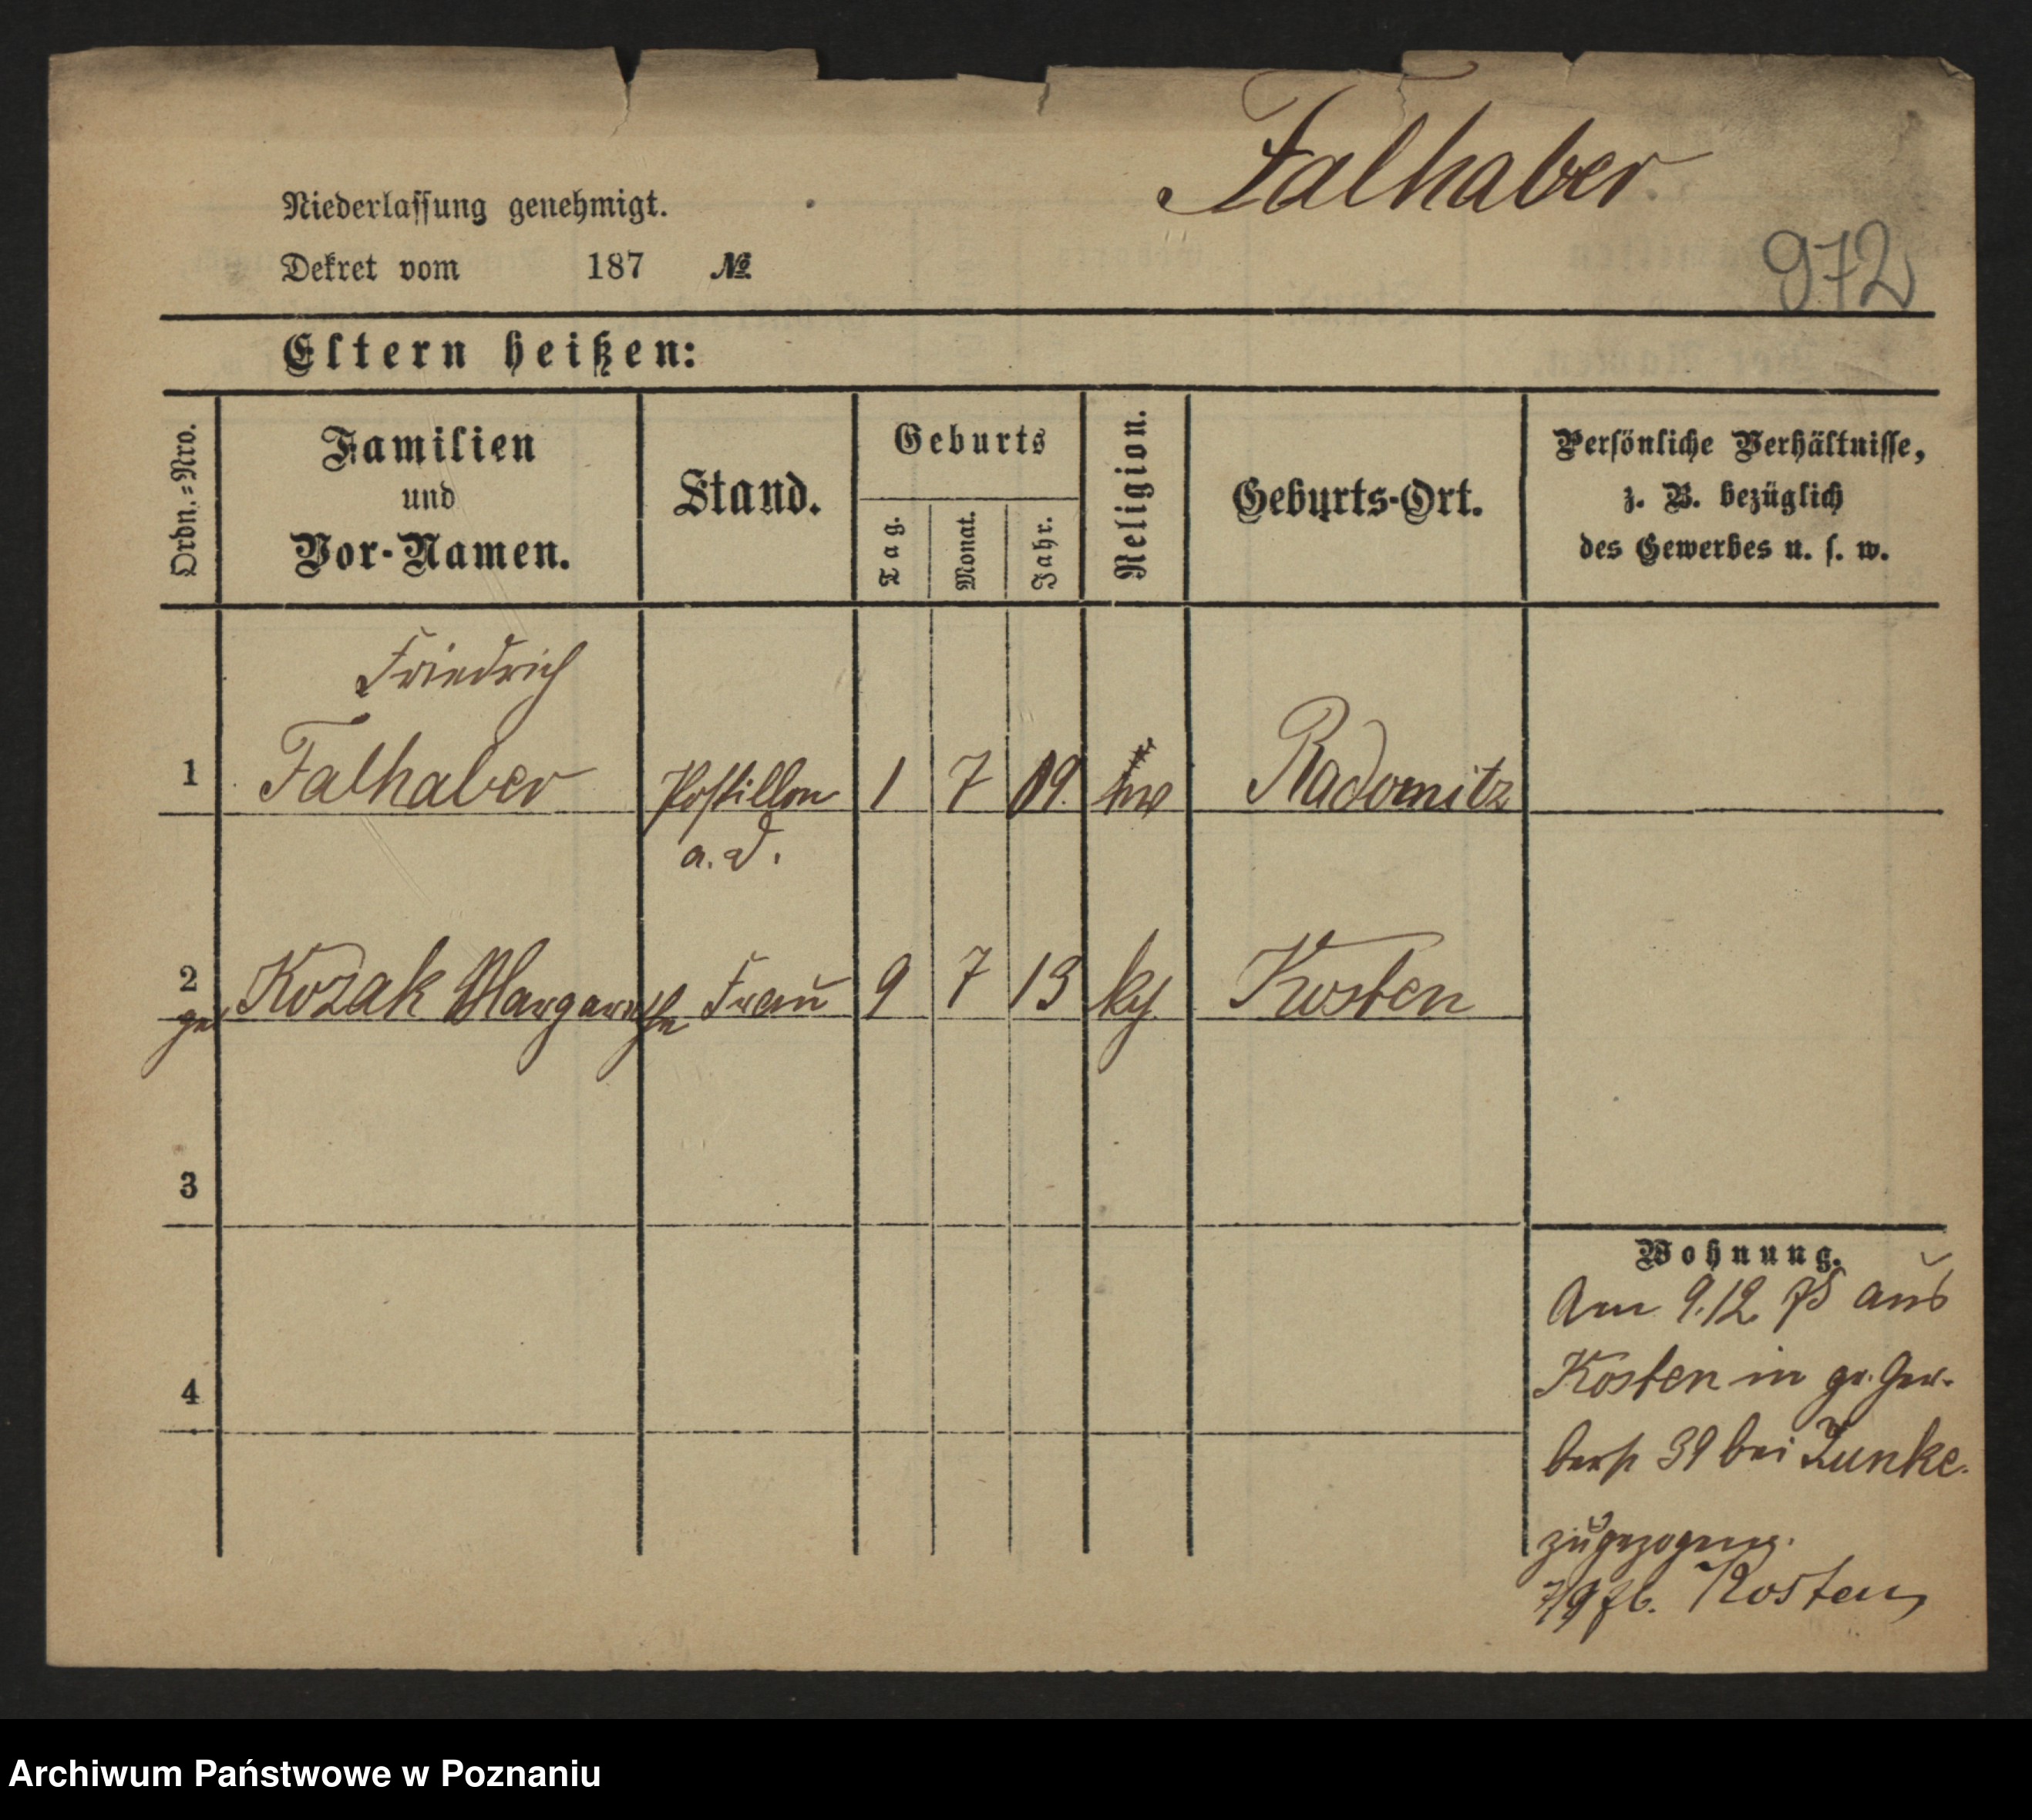 Falhaber
Niederlassung genehmigt.
Dekret vom 187 №
972
Eltern heißen:
Ordn.=Nro.
Familien
und
Vor-Namen.
Stand.
Geburts
Tag.
Monat.
Jahr.
Religion.
Geburts-Ort.
Persönliche Verhältnisse,
z. B. bezüglich
des Gewerbes u. s. w.
Friedrich
1 Falhaber Postillon 1 7 09 Radomitz
a. D.
2 Kozak Margarethe Frau 9 7 13 Kosten
3
4
Wohnung.
Am 9.12 75 aus
Kosten in gr. Ger-
berstr 39 bei Zunke.
zugezogen.
Kosten
Archiwum Państwowe w Poznaniu